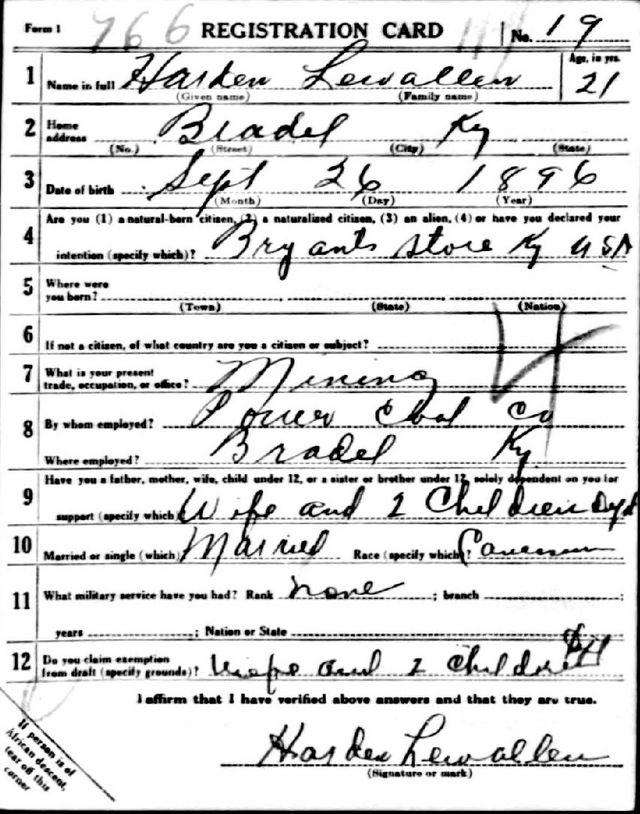 Form 1 766 REGISTRATION CARD No. 19
1 Name in full Harden Lewallen Age, in yrs. 21
(Given name) (Family name)
2 Home address Bradel Ky
(No.) (Street) (City) (State)
3 Date of birth Sept 26 1896
(Month) (Day) (Year)
Are you (1) a natural-born citizen, (2) a naturalized citizen, (3) an alien, (4) or have you declared your
4 intention (specify which)? Bryants Store Ky USA
5 Where were you born?
(Town) (State) (Nation)
6 If not a citizen, of what country are you a citizen or subject?
7 What is your present trade, occupation, or office? Mining
8 By whom employed? Power Coal Co
Where employed? Bradel Ky
Have you a father, mother, wife, child under 12, or a sister or brother under 12, solely dependent on you for
9 support (specify which) Wife and 2 Children
10 Married or single (which) Married Race (specify which)?
11 What military service have you had? Rank none ; branch ;
years ; Nation or State
12 Do you claim exemption from draft (specify grounds)? Wife and 2 children
I affirm that I have verified above answers and that they are true.
Harden Lewallen
(Signature or mark)
If person is of
African descent,
tear off this
corner